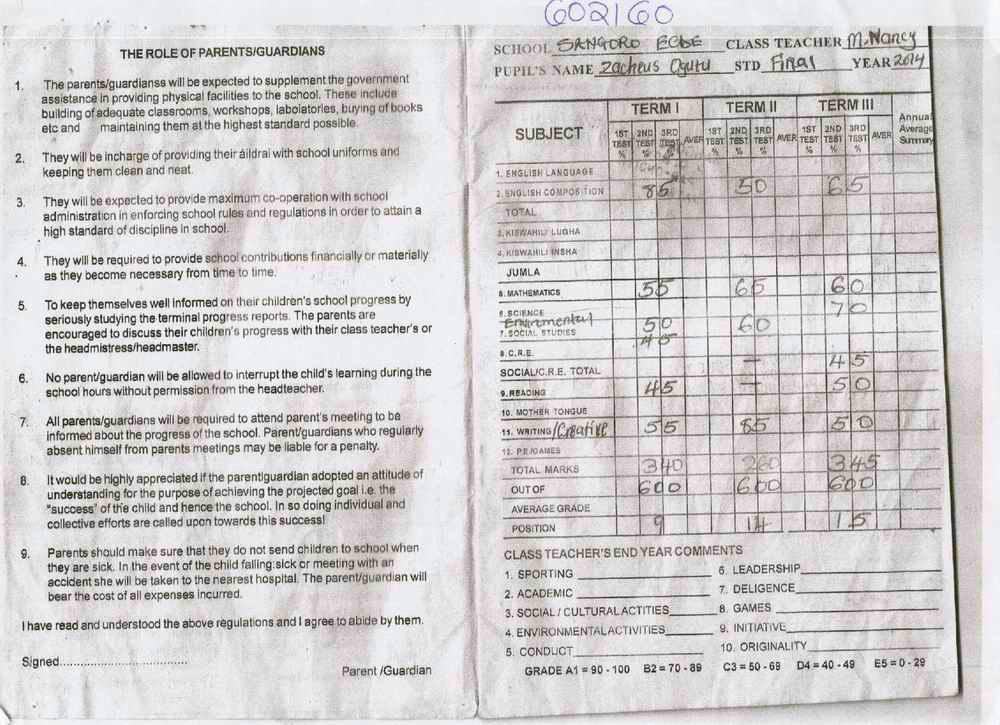 602160
THE ROLE OF PARENTS/GUARDIANS
1. The parents/guardianss will be expected to supplement the government
assistance in providing physical facilities to the school. These include
building of adequate classrooms, workshops, labolatories, buying of books
etc and maintaining them at the highest standard possible.
2. They will be incharge of providing their áildrai with school uniforms and
keeping them clean and neat.
3. They will be expected to provide maximum co-operation with school
administration in enforcing school rules and regulations in order to attain a
high standard of discipline in school.
4. They will be required to provide school contributions financially or materially
as they become necessary from time to time.
5. To keep themselves well informed on their children's school progress by
seriously studying the terminal progress reports. The parents are
encouraged to discuss their children's progress with their class teacher's or
the headmistress/headmaster.
6. No parent/guardian will be allowed to interrupt the child's learning during the
school hours without permission from the headteacher.
7. All parents/guardians will be required to attend parent's meeting to be
informed about the progress of the school. Parent/guardians who regularly
absent himself from parents meetings may be liable for a penalty.
8. It would be highly appreciated if the parentiguardian adopted an attitude of
understanding for the purpose of achieving the projected goal i.e. the
"success' of the child and hence the school. In so doing individual and
collective efforts are called upon towards this success!
9. Parents should make sure that they do not send children to school when
they are sick. In the event of the child falling:sick or meeting with an
accident she will be taken to the nearest hospital. The parent/guardian will
bear the cost of all expenses incurred.
I have read and understood the above regulations and I agree to abide by them.
Signed..................................
Parent /Guardian
SCHOOL SANGORO ECDE CLASS TEACHER M.Nancy
PUPIL'S NAME Zacheus Ogutu STD Final YEAR 2014
SUBJECT TERM I TERM II TERM III Annual Average Summary
1ST TEST % 2ND TEST % 3RD TEST % AVER 1ST TEST % 2ND TEST % 3RD TEST % AVER 1ST TEST % 2ND TEST % 3RD TEST % AVER
1. ENGLISH LANGUAGE
2. ENGLISH COMPOSITION 85 50 65
TOTAL
3. KISWAHILI LUGHA
4. KISWAHILI INSHA
JUMLA
5. MATHEMATICS 55 65 60
6. SCIENCE 70
Environmental 50 60
7. SOCIAL STUDIES 45
8. C.R.E. — 45
SOCIAL/C.R.E. TOTAL
9. READING 45 — 50
10. MOTHER TONGUE
11. WRITING/Creative 55 85 50
12. P.E/GAMES
TOTAL MARKS 340 260 345
OUT OF 600 600 600
AVERAGE GRADE
POSITION 9 14 15
CLASS TEACHER'S END YEAR COMMENTS
1. SPORTING 6. LEADERSHIP
2. ACADEMIC 7. DELIGENCE
3. SOCIAL / CULTURAL ACTITIES 8. GAMES
4. ENVIRONMENTAL ACTIVITIES 9. INITIATIVE
5. CONDUCT 10. ORIGINALITY
GRADE A1 = 90 - 100 B2 = 70 - 89 C3 = 50 - 69 D4 = 40 - 49 E5 = 0 - 29